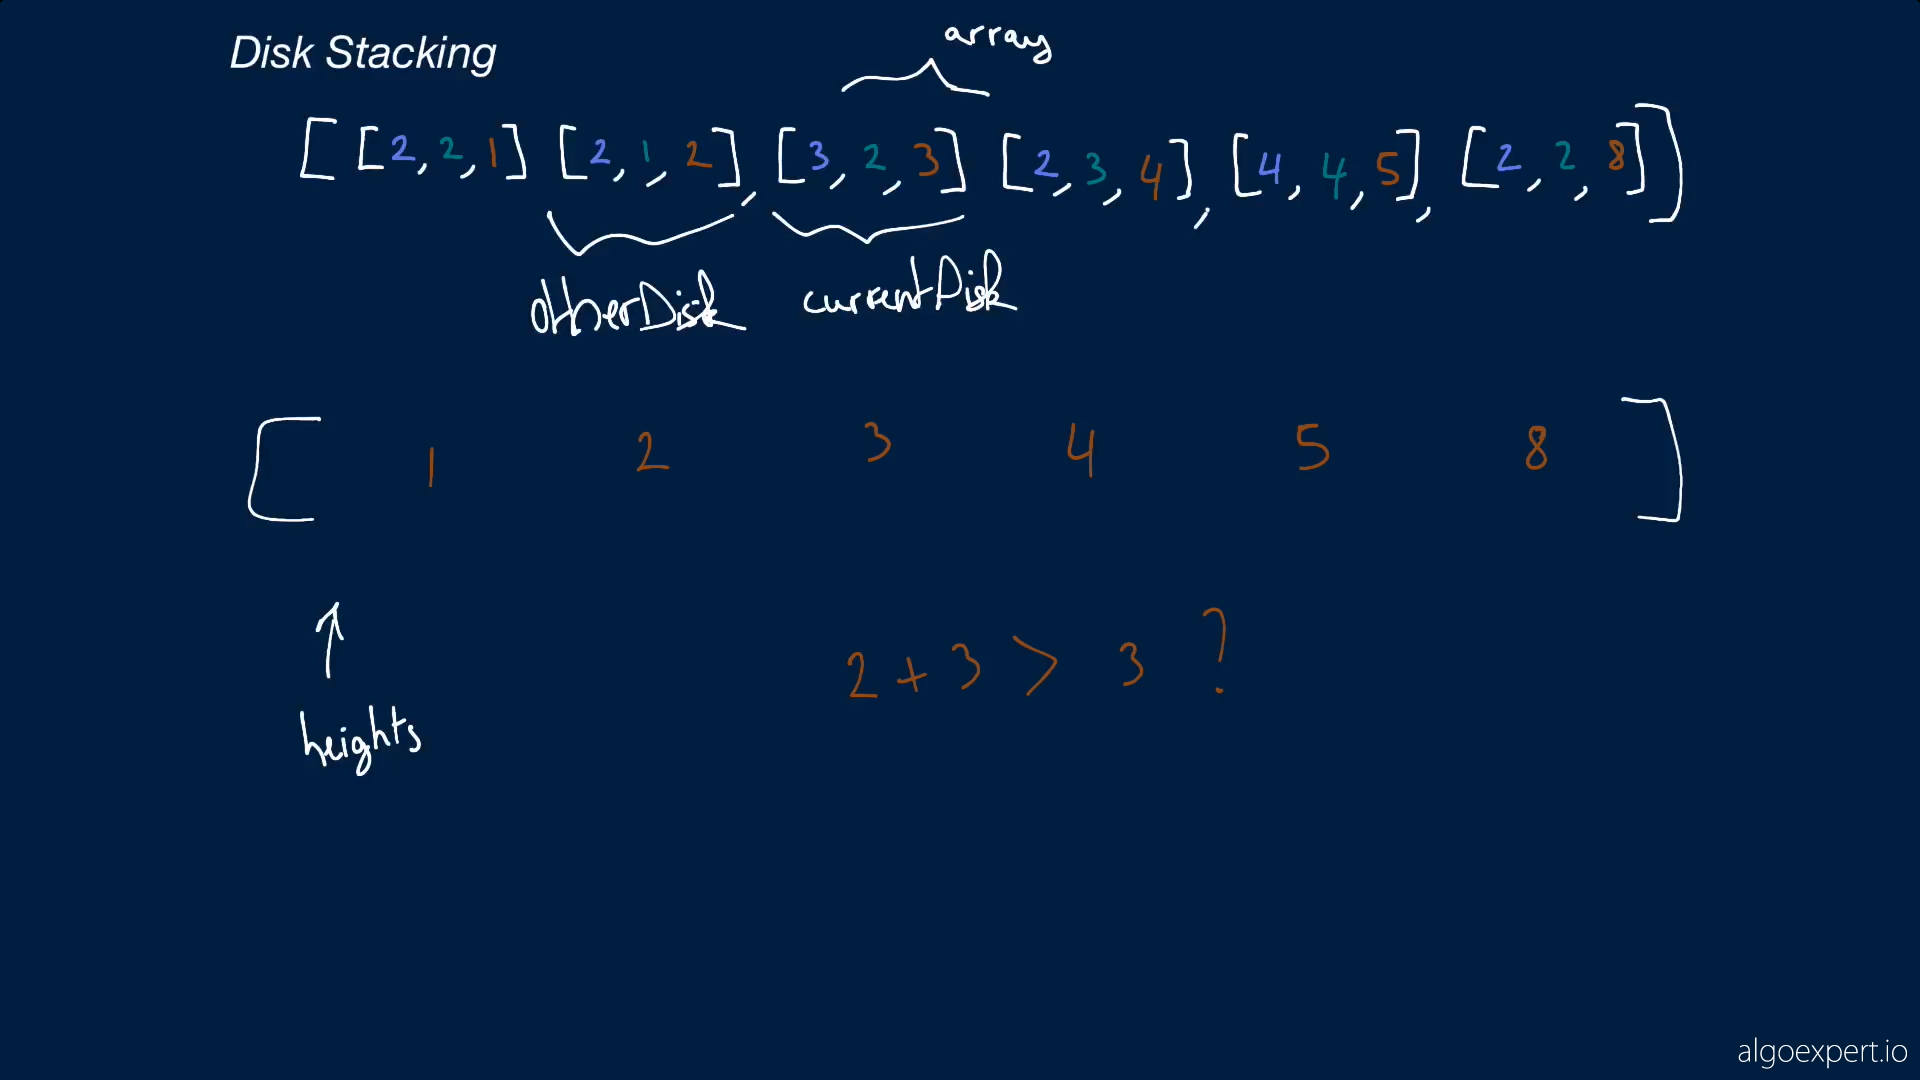 Disk Stacking
array
[ [2, 2, 1] [2, 1, 2], [3, 2, 3] [2, 3, 4], [4, 4, 5], [2, 2, 8] ]
otherDisk currentDisk
[ 1 2 3 4 5 8 ]
2 + 3 > 3 ?
heights
algoexpert.io